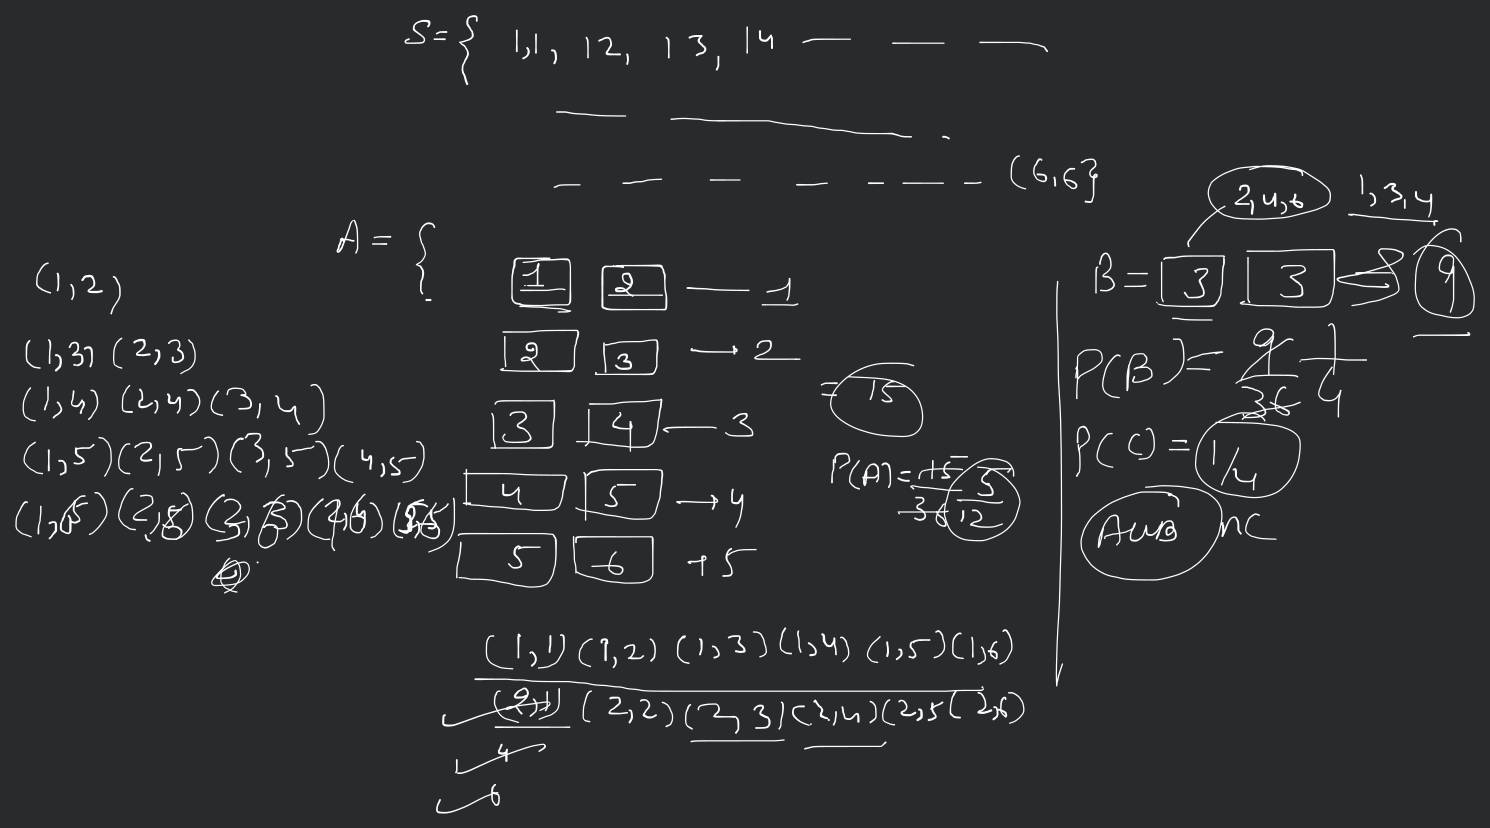 S = { 1,1, 12, 13, 14 — — —
— — .
— — — — — — — (6,6}
2,4,6 1,3,4
A = {
(1,2)
1 2 — 1
B = 3 3 9
(1,3) (2,3)
2 3 → 2
= 15
P(B) = 9/36 1/4
(1,4) (2,4) (3,4)
3 4 — 3
(1,5) (2,5) (3,5) (4,5)
P(A) = 15/36 5/12
P(C) = 1/4
4 5 → 4
A∪B ∩C
5 6 → 5
(1,1) (1,2) (1,3) (1,4) (1,5) (1,6)
(2,1) (2,2) (2,3) (2,4) (2,5 (2,6)
4
6